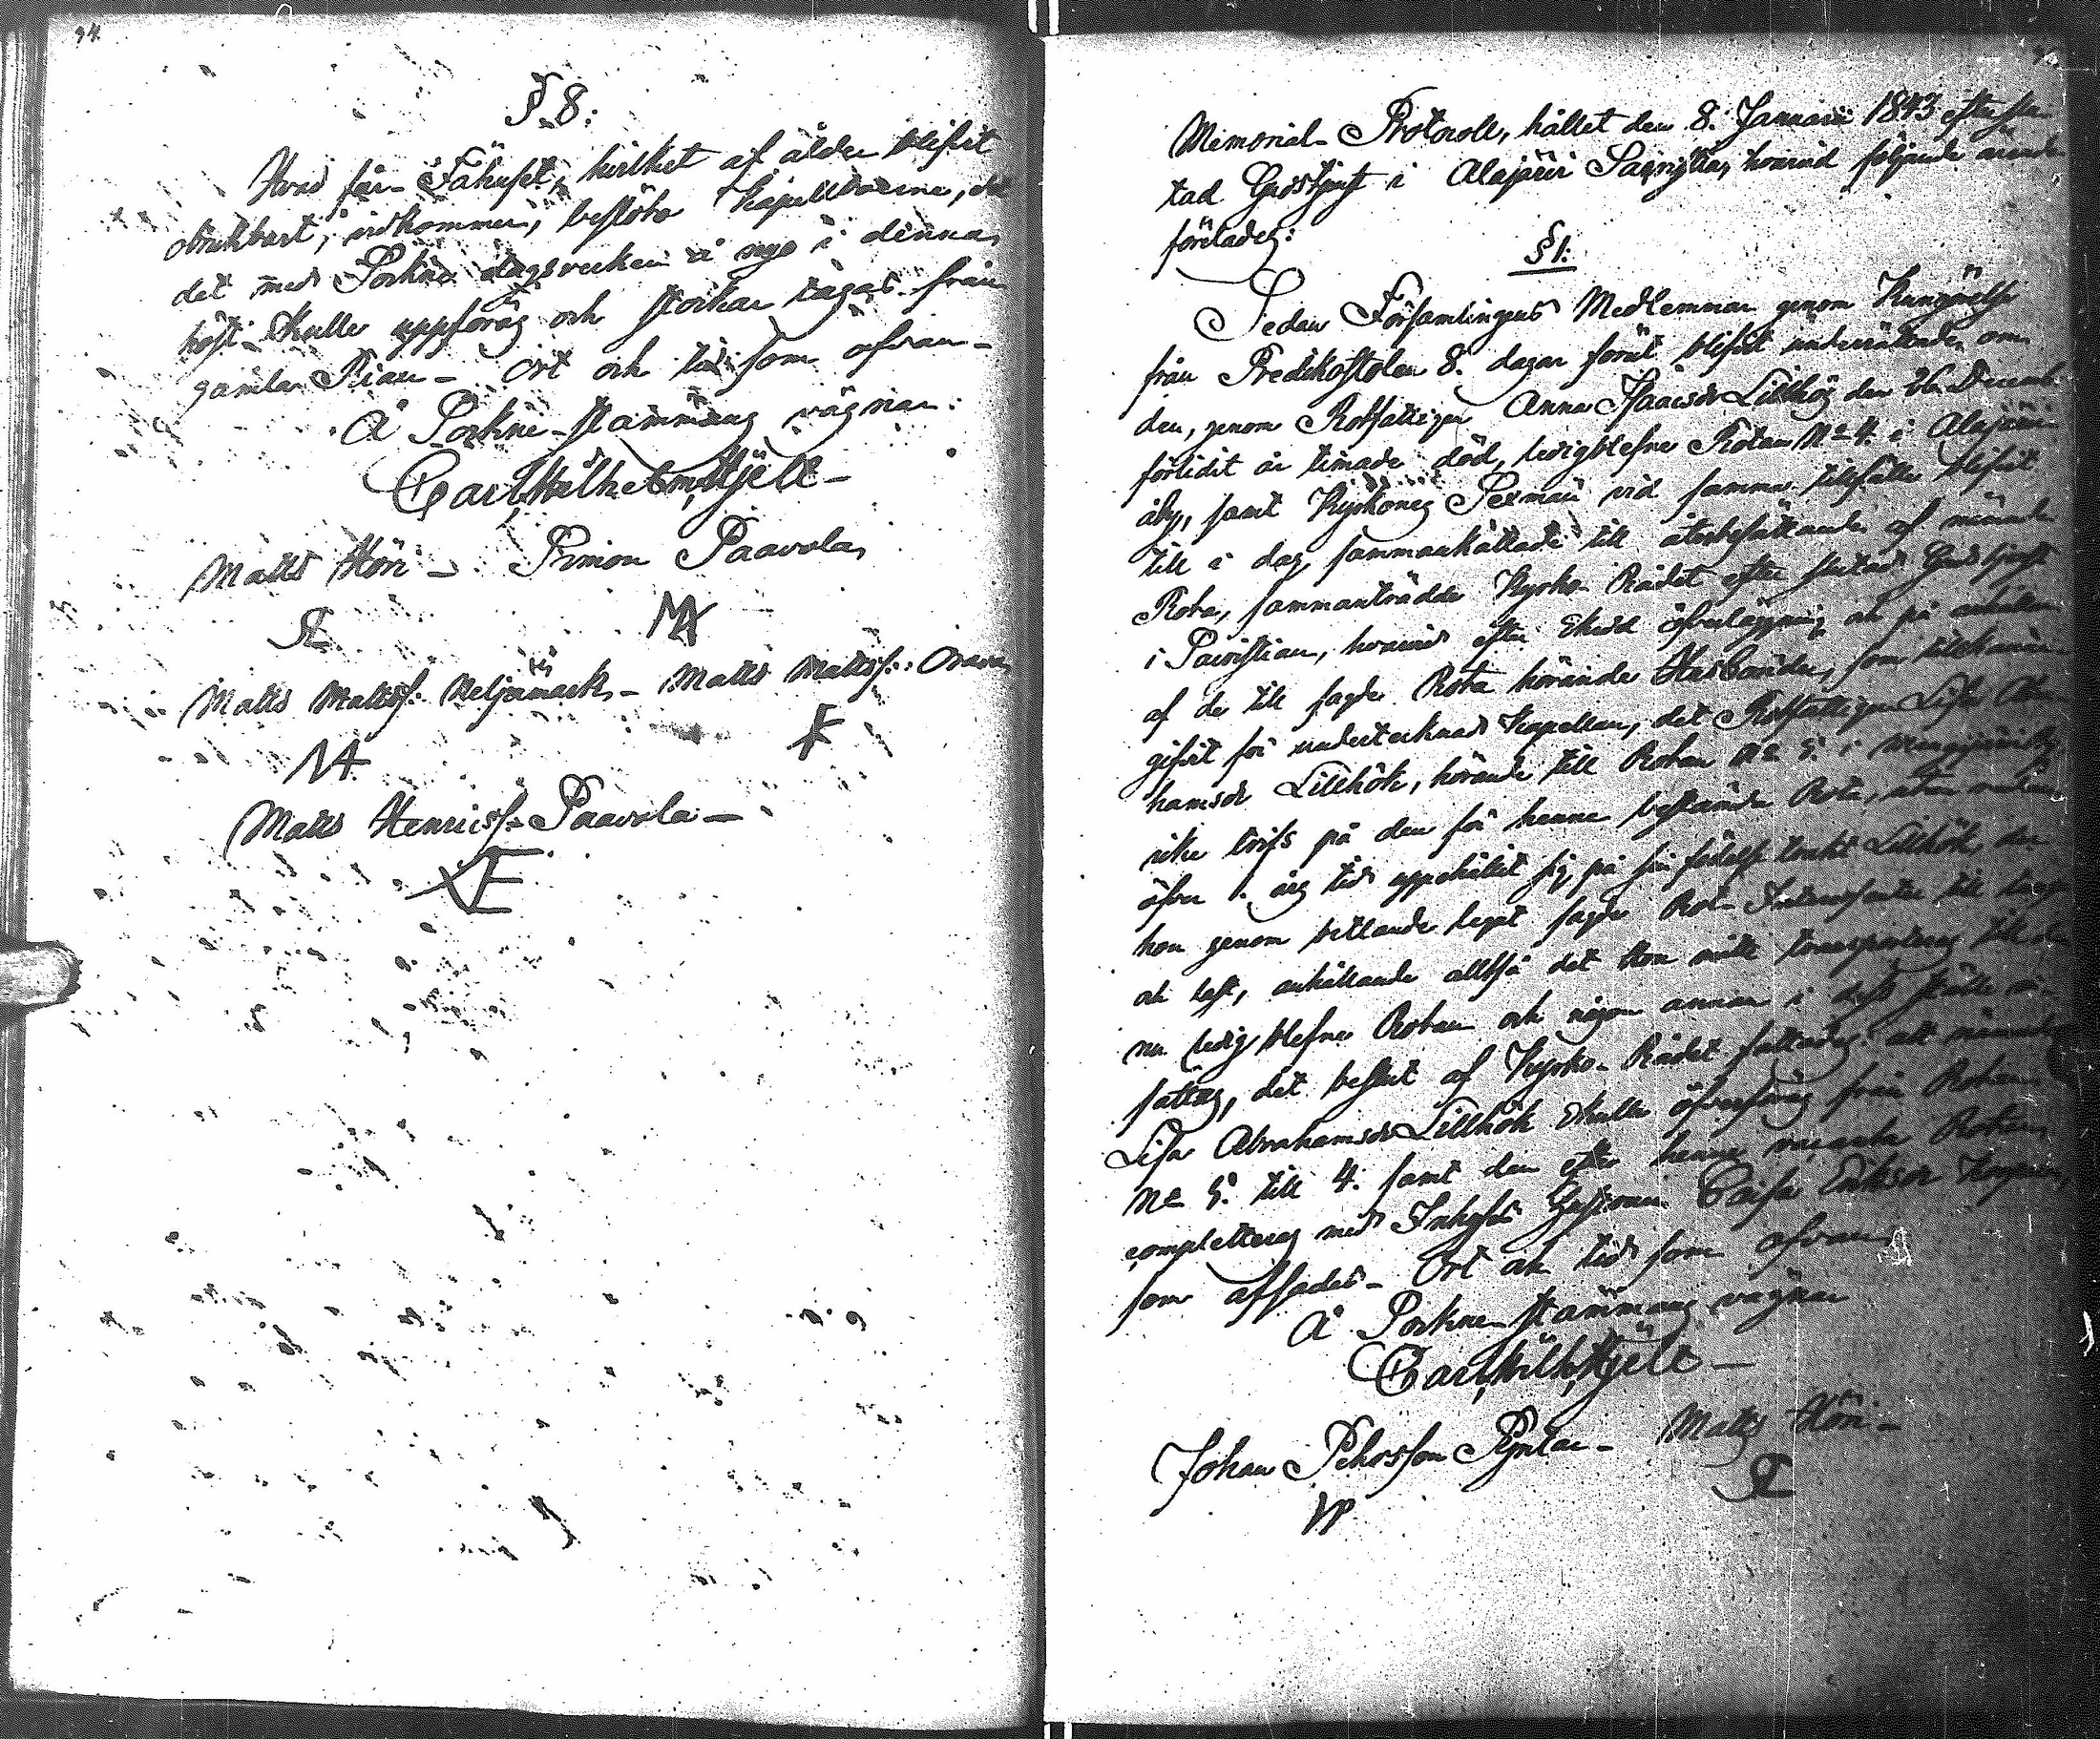 94.
§ 8:
Hvad får-Fähuset, hvilket af ålder blifvit
obrukbart, vidkommer, beslöto Kapellboerne, att
det med Sockne dagsverken å nyo i denna
höst skulle uppföras och stockar tagas från
gamla Rian - Ort och tid som ofvan-
Å Sockne-stämmans vägnar:
Carl Wilhelm Hjelt-
Matts Höri - Simon Paavola
Matts Mattss: Neljämark - Matts Mattss: Orava
Matts Henricss: Paavola -
Memorial-Protocoll, hållet den 8. Januarii 1843 efter slu-
tad Gudstjenst i Alajärvi Sacristia, hvarvid följande ärende
företades:
§ 1:
Sedan Församlingens Medlemmar genom Kungörelse
från Predikostolen 8. dagar förut blifvit underrättade om
den, genom Rotfattigen Anna Isaacsdr Lillhög den 26 Decemb
förlidit år timade död, ledigblefne Rotan No 4. i Alajärvi
by, samt Kyrkones Sexmän vid samma tillfälle blifvit
till i dag sammankallade till återbesättande af nämnde
Rota, sammanträdde Kyrko-Rådet efter slutad Gudstjenst
i Sacristian, hvarvid efter skedd öfverläggning och på anhållan
af de till sagde Rota hörande Husbönder, som tillkänna-
gifvit för undertecknad Kapellan, det Rotfattigen Lisa Abra-
hamsdr Lillhök, hörande till Rotan No 5. i
icke trifs på den för henne bestämda Rota, utan redan
öfver 1. års tid uppehållit sig på sin födelse trakt Lillhök, der
hon genom bettlande legat sagde Rot-Intressenter till tunga
och last, anhållande alltså det Hon måtte transporteras till den
nu ledig blefne Rotan och någon annan i dess ställe
sättas, det beslut af Kyrko-Rådet fattades: att nämnde
Lisa Abrahamsdr Lillhök skulle öfverföras från Rotan
No 5. till 4. samt den efter henne vacanta Rotan
completteras med Inhyses Caisa Eriksdr
som afsades - Ort och tid som ofvan
Å Sockne-stämmans vägnar
Carl Wilh Hjelt -
Johan Pehrsson - Matts Höri -